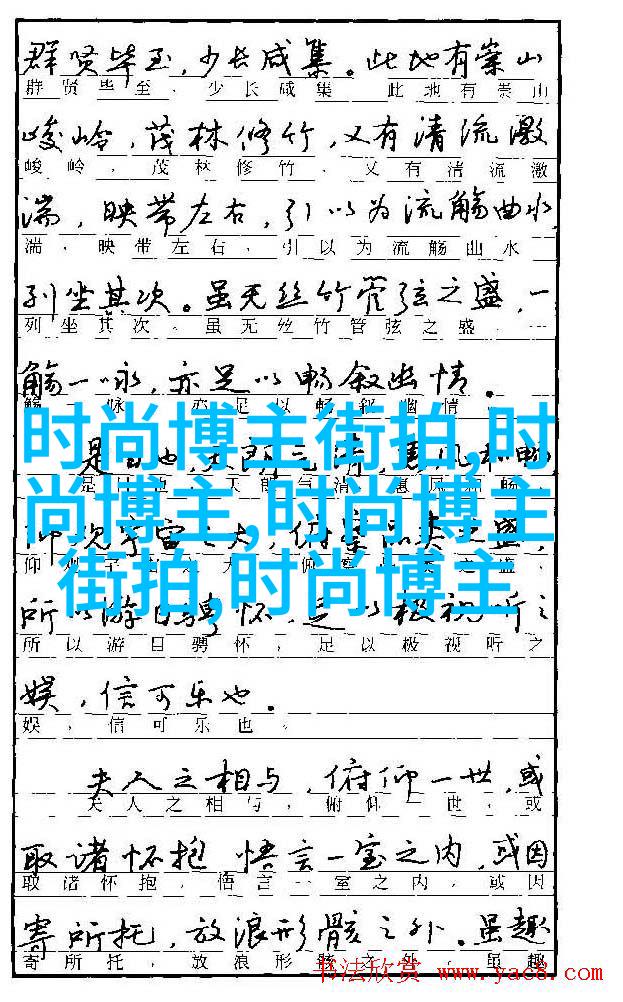 群贤毕至，少长咸集。此地有崇山
群贤毕至，少长咸集 此地有崇山
峻岭，茂林修竹，又有清流激
峻岭，茂林修竹，又有清流激
湍，映带左右，引以为流觞曲水，
湍，映带左右，引以为流觞曲水
列坐其次。虽无丝竹管弦之盛，一
列坐其次。虽无丝竹管弦之盛，一
觞一咏，亦足以畅叙幽情。
觞一咏，亦足以畅叙幽情
时尚博主街拍,时
尚博主,时尚博主
街拍,时尚博主
所以游目骋怀，足以极视听之
所以游目骋怀，足以极视听之
娱，信可乐也。
娱，信可乐也。
夫人之相与，俯仰一世，或
夫人之相与，俯仰一世，或
取诸怀抱 悟言一室之内，或因
取诸怀抱，悟言一室之内，或因
寄所托，放浪形骸之外。虽趣
寄所托，放浪形骸之外。虽趣
书法欣赏 www.yac8.com